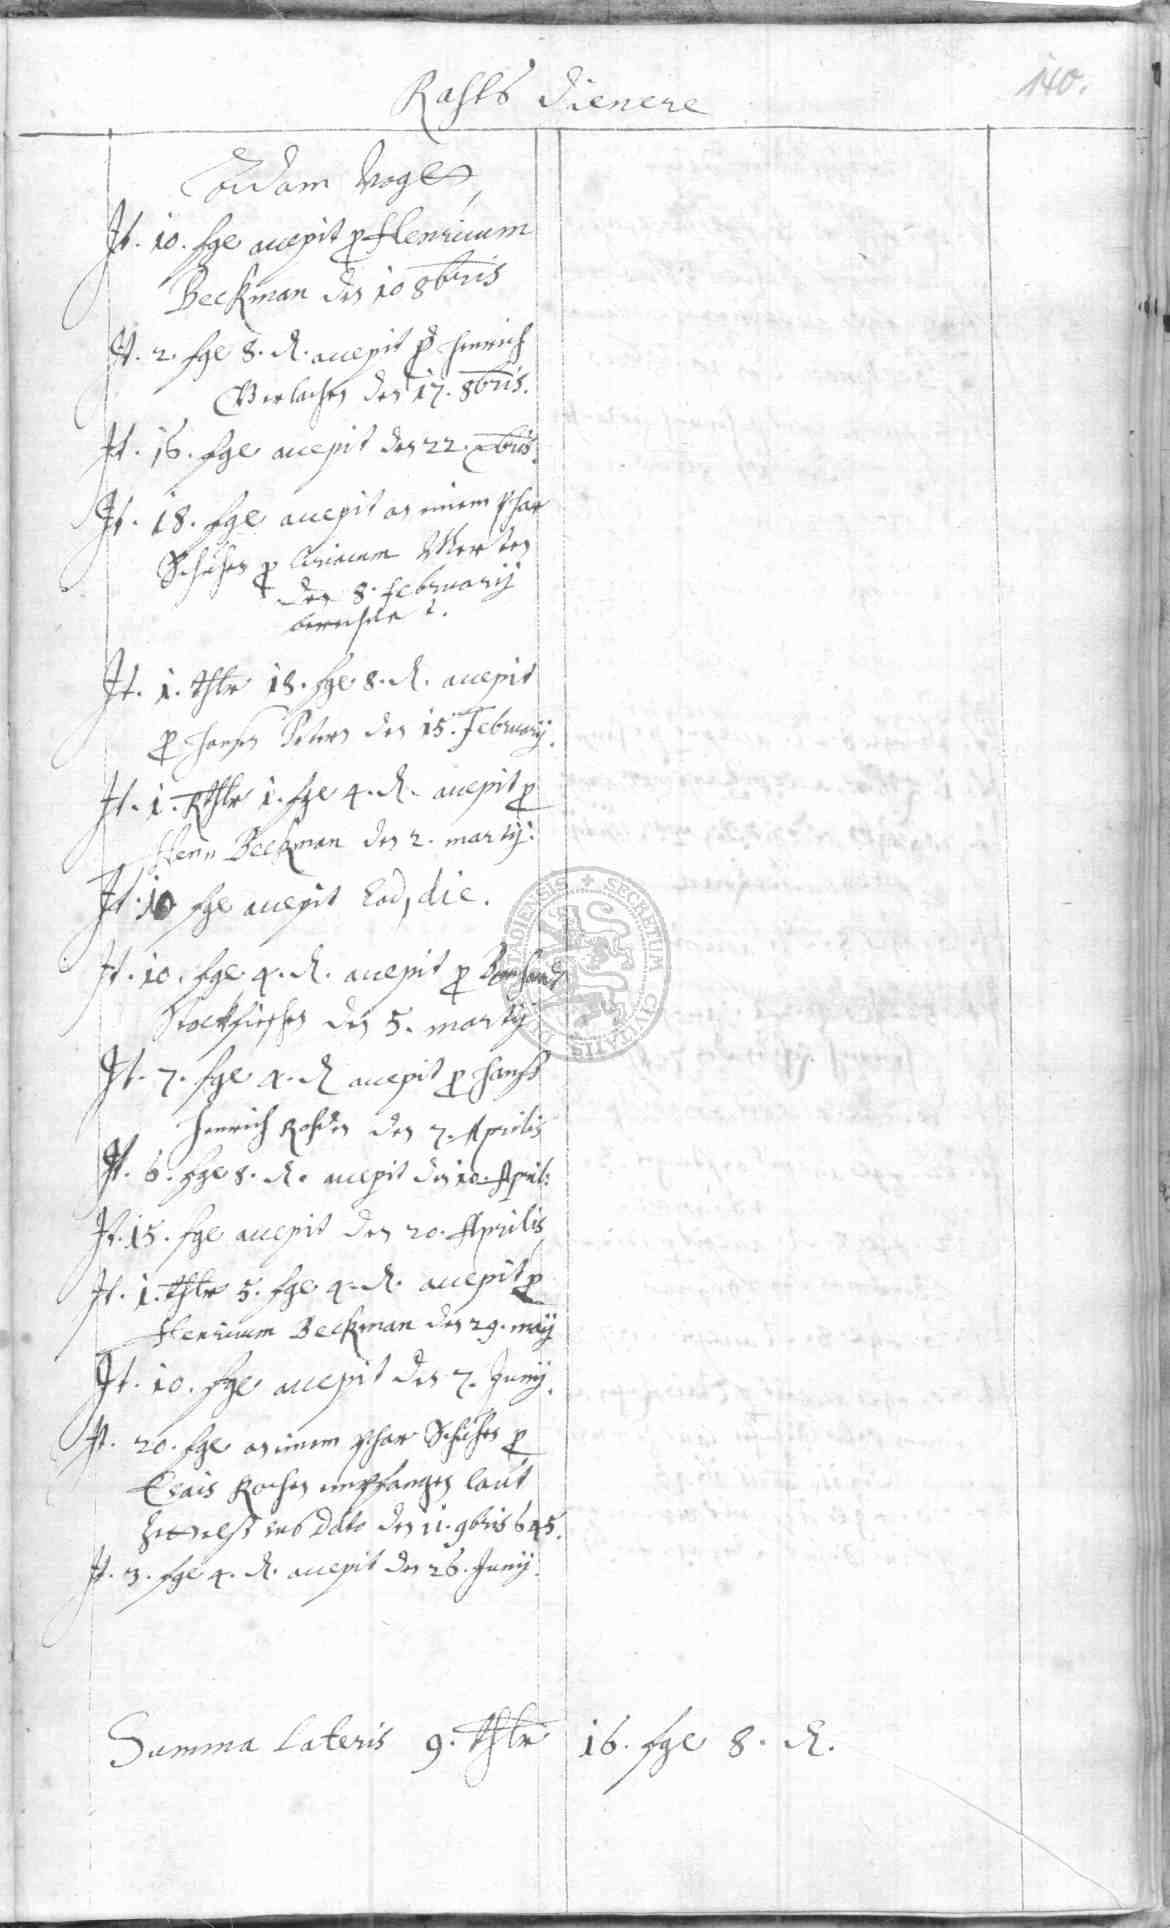 140.
Rahts Dienere
Adam Voges
It. 10. sgl accepit p Henricum
Beckman den 10 8bris
It. 2. sgl 8. d. accepit p Henrich
Gerlachen den 17. 8bris.
It. 16. sgl accepit den 22. Xbris.
It. 18. sgl accepit an einem Phar
Schuhen p Ciriacum Merten
den 8. February
It. 1. thlr 18. sgl 8. d. accepit
p Hansen Peters den 15. February.
It. 1. Rthlr 1. sgl 4. d. accepit p
Henr Beckman den 2. martij.
It. 10 sgl accepit Eod, die.
It. 10. sgl 4. d. accepit p Bernhardt
Stockfischen den 5. martij
It. 7. sgl 4. d accepit p Hanß
Henrich Rohden den 7. Aprilis
It. 6. sgl 8. d. accepit den 10. April:
It. 15. sgl accepit den 20. Aprilis
It. 1. thlr 5. sgl 4. d. accepit p
Henricum Beckman den 29. maij
It. 10. sgl accepit den 7. Junij.
It. 20. sgl an einem Phar Schuhen p
Esais Rochen empfangen laut
Zettelß sub Dato den 11. 9bris 645.
It. 3. sgl 4. d. accepit den 26. Junij.
Summa Lateris 9. thlr 16. sgl 8. d.
SECRETUM CIVITATIS